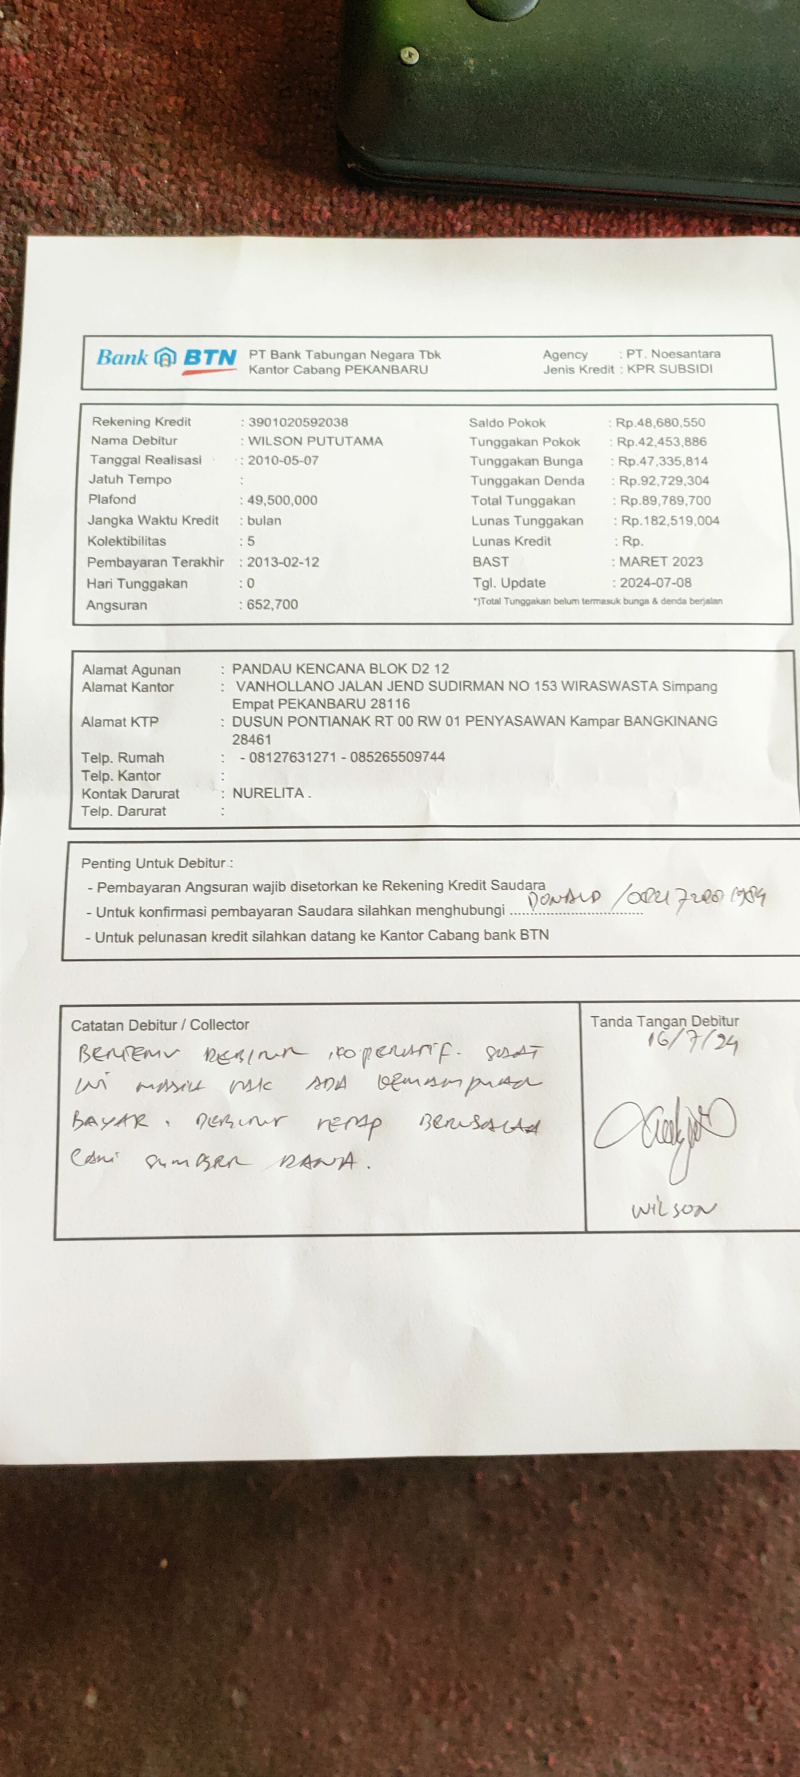 Bank BTN PT Bank Tabungan Negara Tbk Agency : PT. Noesantara
Kantor Cabang PEKANBARU Jenis Kredit : KPR SUBSIDI
Rekening Kredit : 3901020592038 Saldo Pokok : Rp.48,680,550
Nama Debitur : WILSON PUTUTAMA Tunggakan Pokok : Rp.42,453,886
Tanggal Realisasi : 2010-05-07 Tunggakan Bunga : Rp.47,335,814
Jatuh Tempo : Tunggakan Denda : Rp.92,729,304
Plafond : 49,500,000 Total Tunggakan : Rp.89,789,700
Jangka Waktu Kredit : bulan Lunas Tunggakan : Rp.182,519,004
Kolektibilitas : 5 Lunas Kredit : Rp.
Pembayaran Terakhir : 2013-02-12 BAST : MARET 2023
Hari Tunggakan : 0 Tgl. Update : 2024-07-08
Angsuran : 652,700 *)Total Tunggakan belum termasuk bunga & denda berjalan
Alamat Agunan : PANDAU KENCANA BLOK D2 12
Alamat Kantor : VANHOLLANO JALAN JEND SUDIRMAN NO 153 WIRASWASTA Simpang
Empat PEKANBARU 28116
Alamat KTP : DUSUN PONTIANAK RT 00 RW 01 PENYASAWAN Kampar BANGKINANG
28461
Telp. Rumah : - 08127631271 - 085265509744
Telp. Kantor :
Kontak Darurat : NURELITA .
Telp. Darurat :
Penting Untuk Debitur :
- Pembayaran Angsuran wajib disetorkan ke Rekening Kredit Saudara
- Untuk konfirmasi pembayaran Saudara silahkan menghubungi DONALD
- Untuk pelunasan kredit silahkan datang ke Kantor Cabang bank BTN
Catatan Debitur / Collector Tanda Tangan Debitur
16/7/24
BERTEMU DEBITUR, KOPERATIF. SAAT
INI MASIH TAK ADA KEMAMPUAN
BAYAR. DEBITUR TETAP BERUSAHA
CARI SUMBER DANA.
WILSON